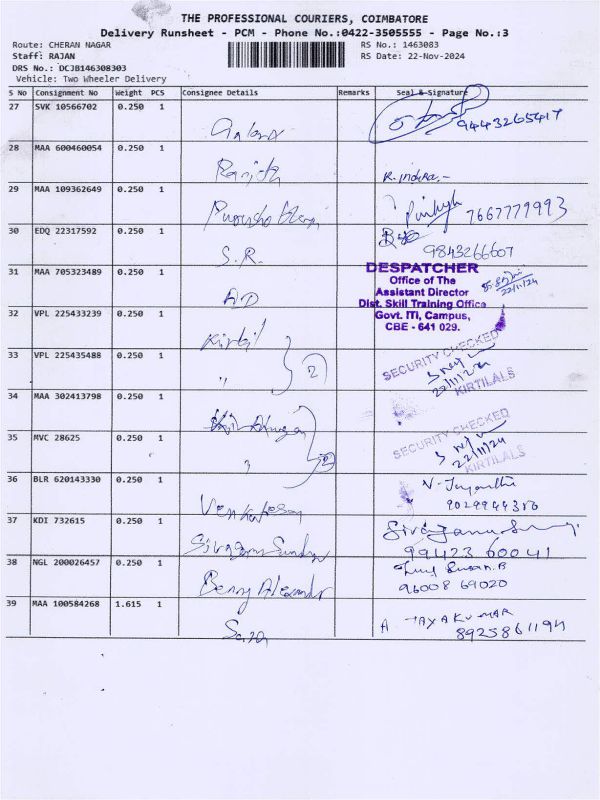 THE PROFESSIONAL COURIERS, COIMBATORE
Delivery Runsheet - PCM - Phone No.:0422-3505555 - Page No.:3
Route: CHERAN NAGAR
RS No.: 1463083
Staff: RAJAN
RS Date: 22-Nov-2024
DRS No.: DCJB146308303
Vehicle: Two Wheeler Delivery
S No Consignment No Weight PCS Consignee Details Remarks Seal & Signature
27 SVK 10566702 0.250 1 9443265417
28 MAA 600460054 0.250 1 Ranjith R. Indira
29 MAA 109362649 0.250 1 7667779993
30 EDQ 22317592 0.250 1 S.R. 9843266607
31 MAA 705323489 0.250 1 AD
DESPATCHER
Office of The
Assistant Director
Dist. Skill Training Office
Govt. ITI, Campus,
CBE - 641 029.
22/11/24
32 VPL 225433239 0.250 1
33 VPL 225435488 0.250 1 " 2
SECURITY CHECKED
22/11/24
KIRTILALS
34 MAA 302413798 0.250 1
35 MVC 28625 0.250 1 " 2
SECURITY CHECKED
22/11/24
KIRTILALS
36 BLR 620143330 0.250 1 Venkatesan V. Jayanthi
37 KDI 732615 0.250 1 99423 60041
38 NGL 200026457 0.250 1 Benny Alexander 96008 69020
39 MAA 100584268 1.615 1 A. JAYAKUMAR
8925861194